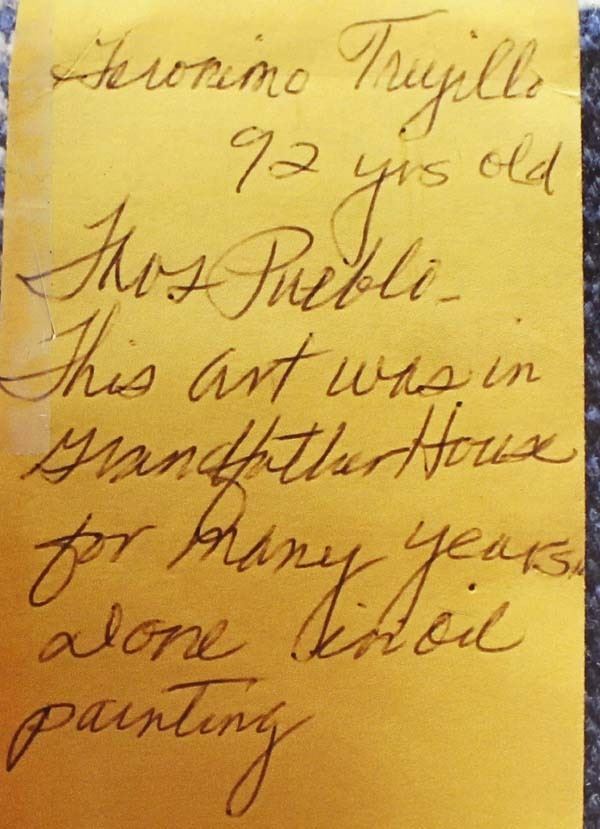 Geronimo Trujillo
92 yrs old
Taos Pueblo -
This art was in
Grandfather House
for many years
done in oil
painting